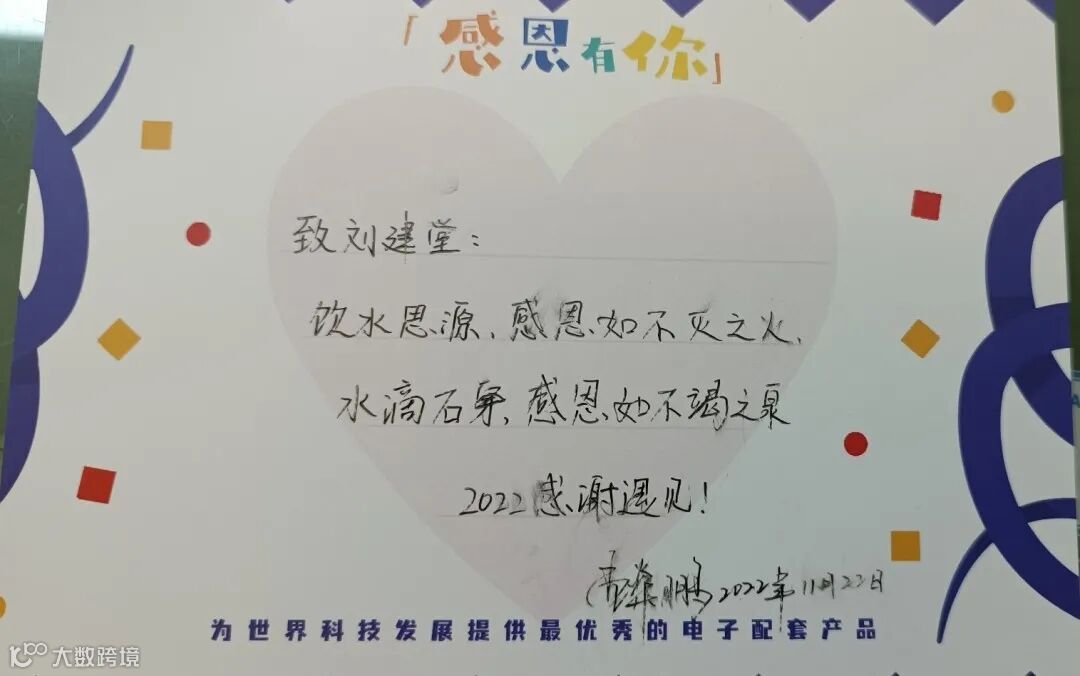 「感恩有你」
致刘建堂:
饮水思源,感恩如不灭之火,
水滴石穿,感恩如不竭之泉
2022感谢遇见!
鹏 2022年11月22日
为世界科技发展提供最优秀的电子配套产品
大数跨境